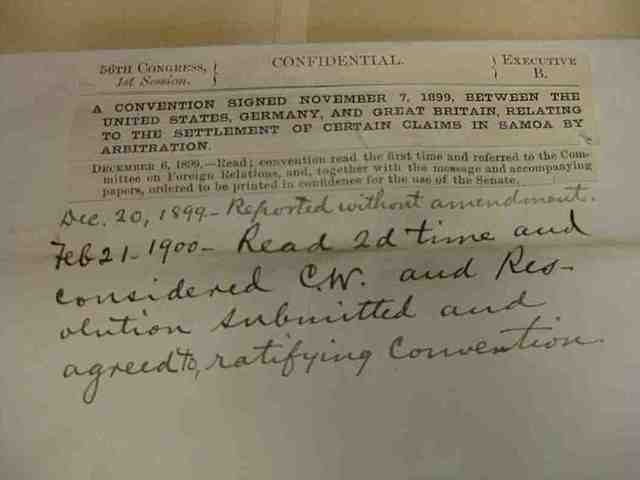 56TH CONGRESS, } CONFIDENTIAL. { EXECUTIVE
1st Session. B.
A CONVENTION SIGNED NOVEMBER 7, 1899, BETWEEN THE
UNITED STATES, GERMANY, AND GREAT BRITAIN, RELATING
TO THE SETTLEMENT OF CERTAIN CLAIMS IN SAMOA BY
ARBITRATION.
DECEMBER 6, 1899.—Read; convention read the first time and referred to the Com-
mittee on Foreign Relations, and, together with the message and accompanying
papers, ordered to be printed in confidence for the use of the Senate.
Dec. 20, 1899 - Reported without amendment.
Feb 21 - 1900 - Read 2d time and
considered C.W. and Res-
olution submitted and
agreed to, ratifying Convention.